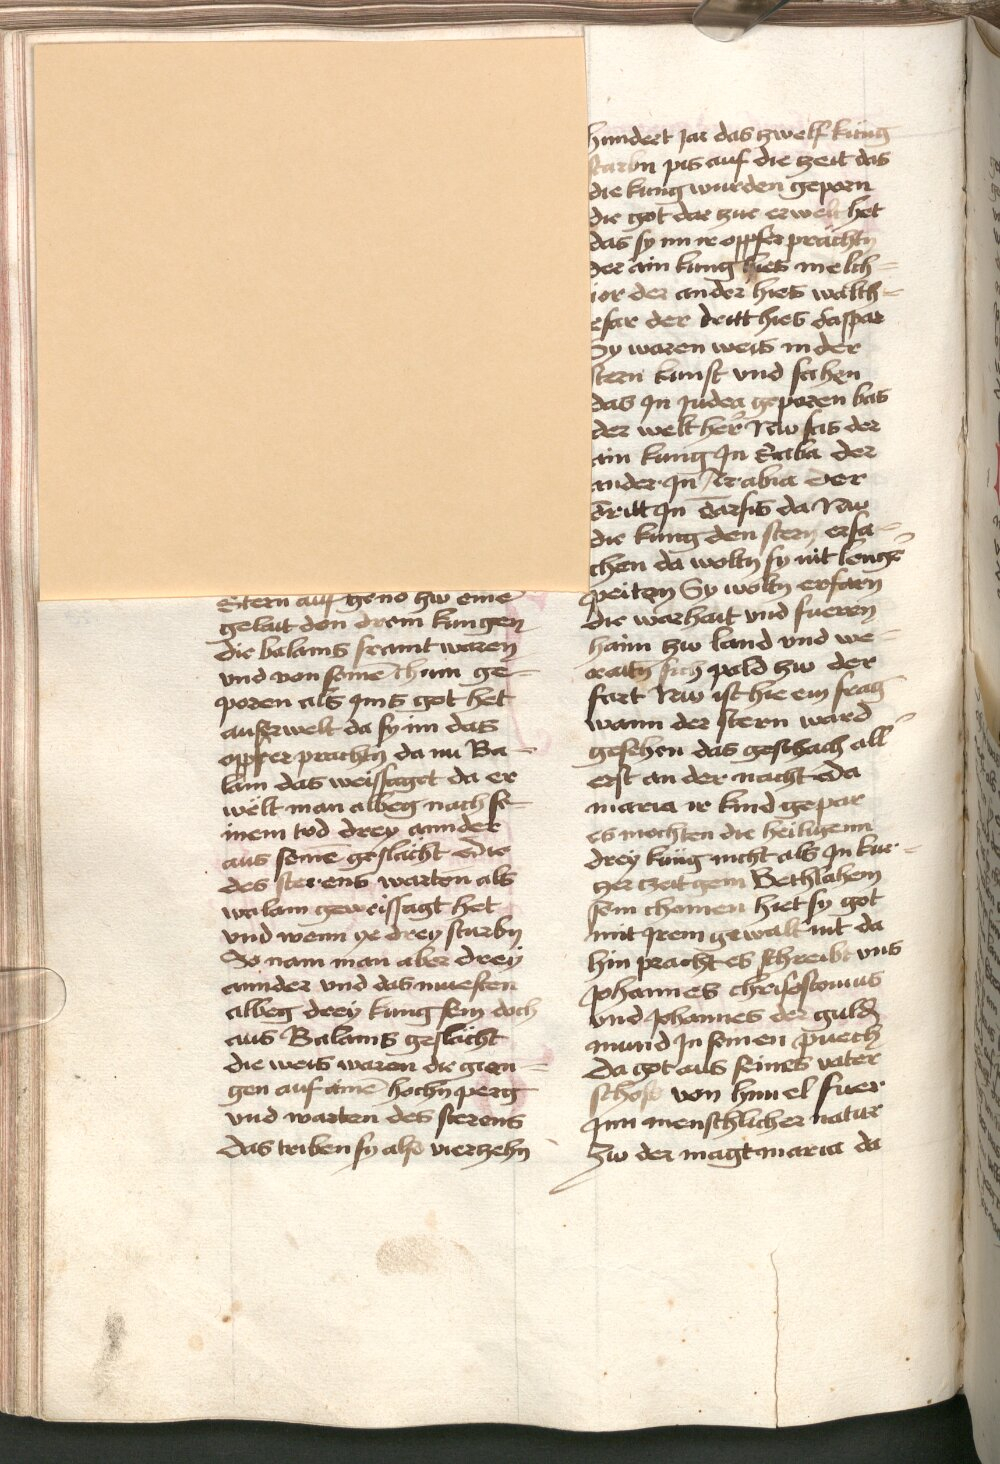 Stern auf geno hw eine
gelait den drein kungen
die balams framt waren
und von seinē thum ge-
poren als Jms got het
auserwelt da sy im das
opffer prachtn da nu Ba-
lam das weissaget da er
welt man albeg nach se-
inem tod drey annder
aus seinē geslächt die
des sterens warten als
walam geweissagt het
und wenn ye drey sturbn
So nam man aber drey
annder und das muesten
albeg drey kung sein doch
aus Balams geslächt
die weis waren die gien-
gen auf ainē hochn perg
und warten des sterens
Das triben sy also vierzehn
hundert Jar das zwelf kung
starbn pis auf die zeit das
die kung wurden geporn
die got dar zue erwelt het
das sy im ir opffer prachtn
der ain kung hies melch-
ior der ander hies walth-
esar der dritt hies Caspar
Sy waren weis in der
stern kunst und sahen
das In Judea geporen bas
der welt her Nw sas der
ain kung In Saba der
ander In Arabia Der
dritt In Tarsis da Nw
die kung den stern ersa-
chen da woltn sy nit lenger
peiten Sy woltn erfarn
die warhait und fueren
haim zw land und we-
raitn sich pald zw der
fart Nw ist hie ein frag
wann der stern ward
gesehen das geschach all
erst an der nacht Da
maria ir kind gepar
es mochten die heiligenn
drey kung nicht als In kur-
zer czeit gem Bethlahem
sein chomen hiet sy got
mit Irem gewalt nit da
hin pracht es schreibt uns
Johannes chrisostomus
und Johannes der guldn
mund In seinen puech
Da got aus seines vater
schoss von himel fuer
Inn menschlicher natur
Zw der magt maria da